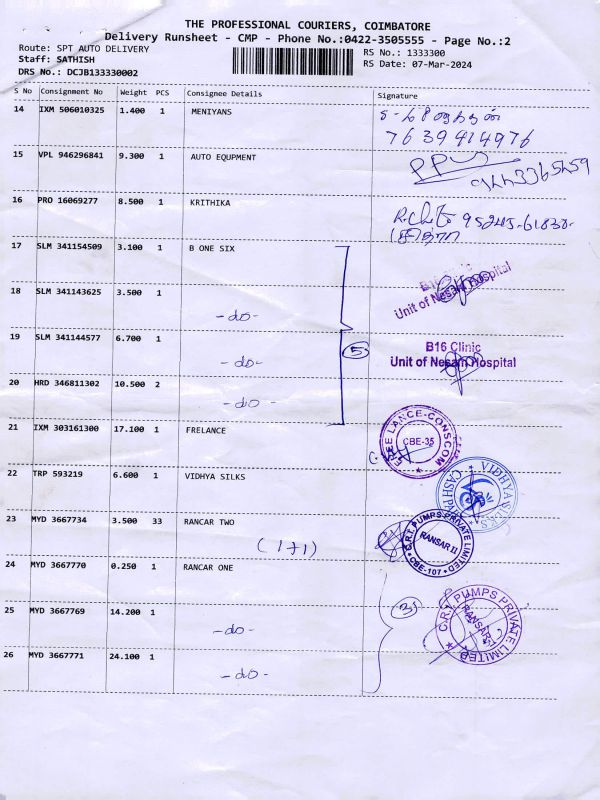 THE PROFESSIONAL COURIERS, COIMBATORE
Delivery Runsheet - CMP - Phone No.:0422-3505555 - Page No.:2
Route: SPT AUTO DELIVERY
RS No.: 1333300
Staff: SATHISH
RS Date: 07-Mar-2024
DRS No.: DCJB133330002
S No Consignment No Weight PCS Consignee Details Signature
14 IXM 506010325 1.400 1 MENIYANS
7639414976
15 VPL 946296841 9.300 1 AUTO EQUPMENT
16 PRO 16069277 8.500 1 KRITHIKA
17 SLM 341154509 3.100 1 B ONE SIX
B16 Clinic
Unit of Nesam Hospital
18 SLM 341143625 3.500 1
-do-
19 SLM 341144577 6.700 1
-do-
5
B16 Clinic
Unit of Nesam Hospital
20 HRD 346811302 10.500 2
-do-
21 IXM 303161300 17.100 1 FRELANCE
FREE LANCE-CONSCOM
CBE-35
22 TRP 593219 6.600 1 VIDHYA SILKS
VIDHYA SILKS
23 MYD 3667734 3.500 33 RANCAR TWO
(1+1)
C.R.I. PUMPS PRIVATE LIMITED
RANSAR II
CBE-107
24 MYD 3667770 0.250 1 RANCAR ONE
25 MYD 3667769 14.200 1
-do-
3
C.R.I. PUMPS PRIVATE LIMITED
26 MYD 3667771 24.100 1
-do-